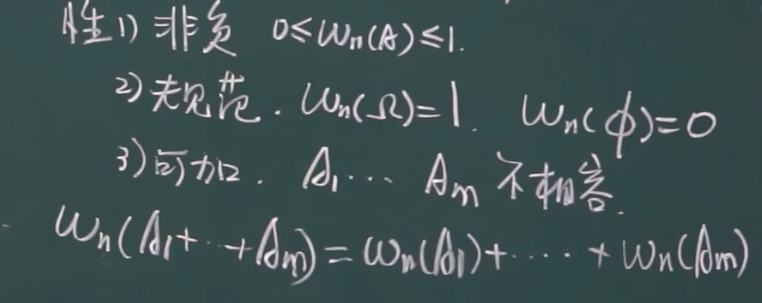 性1) 非负 0≤Wn(A)≤1.
2) 规范. Wn(Ω)=1. Wn(ϕ)=0
3) 可加. A1⋯ Am 不相容.
Wn(A1+⋯+Am)=Wn(A1)+⋯⋯+Wn(Am)